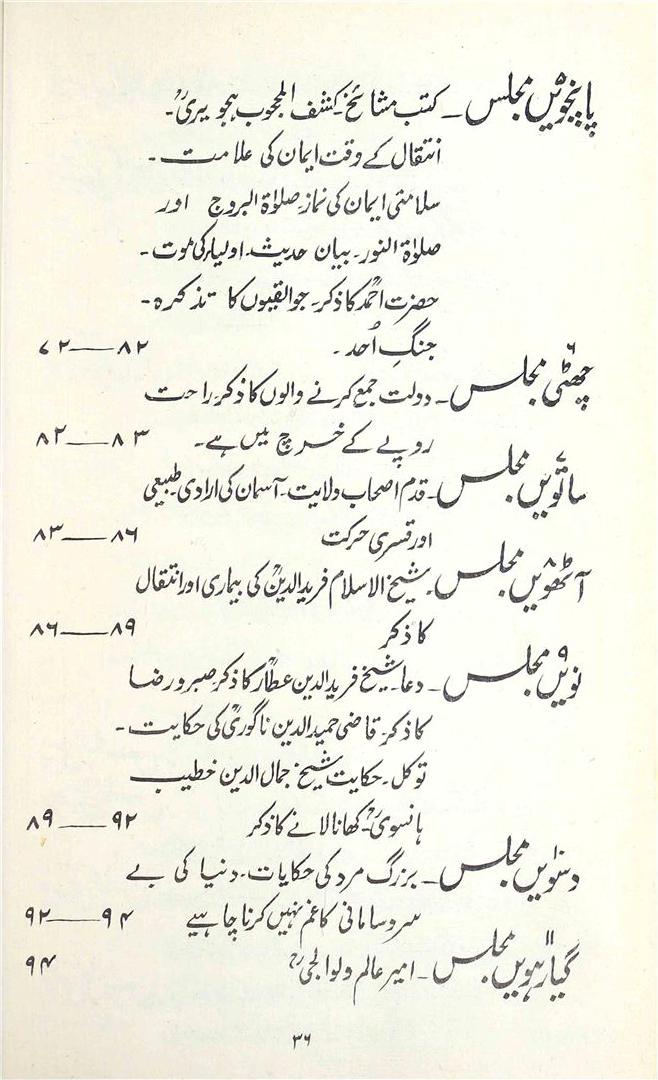 پانچویں ۵ مجلس ـ کتب مشائخ۔ کشف المحجوب ہجویریؒ۔
انتقال کے وقت ایمان کی علامت۔
سلامتی ایمان کی نماز۔ صلوٰۃ البروج اور
صلوٰۃ النور۔ بیان حدیث۔ اولیاء کی موت۔
حضرت احمدؒ کا ذکر۔ جوالقیوں کا تذکرہ۔
جنگِ اُحد۔ ۸۲ــــ۷۲
چھٹی ۶ مجلس ـ دولت جمع کرنے والوں کا ذکر۔ راحت
روپے کے خرچ میں ہے۔ ۸۳ــــ۸۲
ساتویں ۷ مجلس ـ قدم اصحاب ولایت۔ آسمان کی ارادی۔ طبیعی
اور قسری حرکت ۸۶ــــ۸۳
آٹھویں ۸ مجلس ـ شیخ الاسلام فرید الدینؒ کی بیماری اور انتقال
کا ذکر ۸۹ــــ۸۶
نویں ۹ مجلس ـ دعا۔ شیخ فرید الدین عطارؒ کا ذکر۔ صبر و رضا
کا ذکر۔ قاضی حمید الدین ناگوریؒ کی حکایت۔
توکل۔ حکایت شیخ جمال الدین خطیب
ہانسویؒ۔ کھانا لانے کا ذکر ۹۲ــــ۸۹
دسویں ۱۰ مجلس ـ بزرگ مرد کی حکایات۔ دنیا کی بے
سر و سامانی کا غم نہیں کرنا چاہیے ۹۴ــــ۹۲
گیارہویں ۱۱ مجلس ـ امیر عالم ولوالجیؒ ۹۴
۳۶